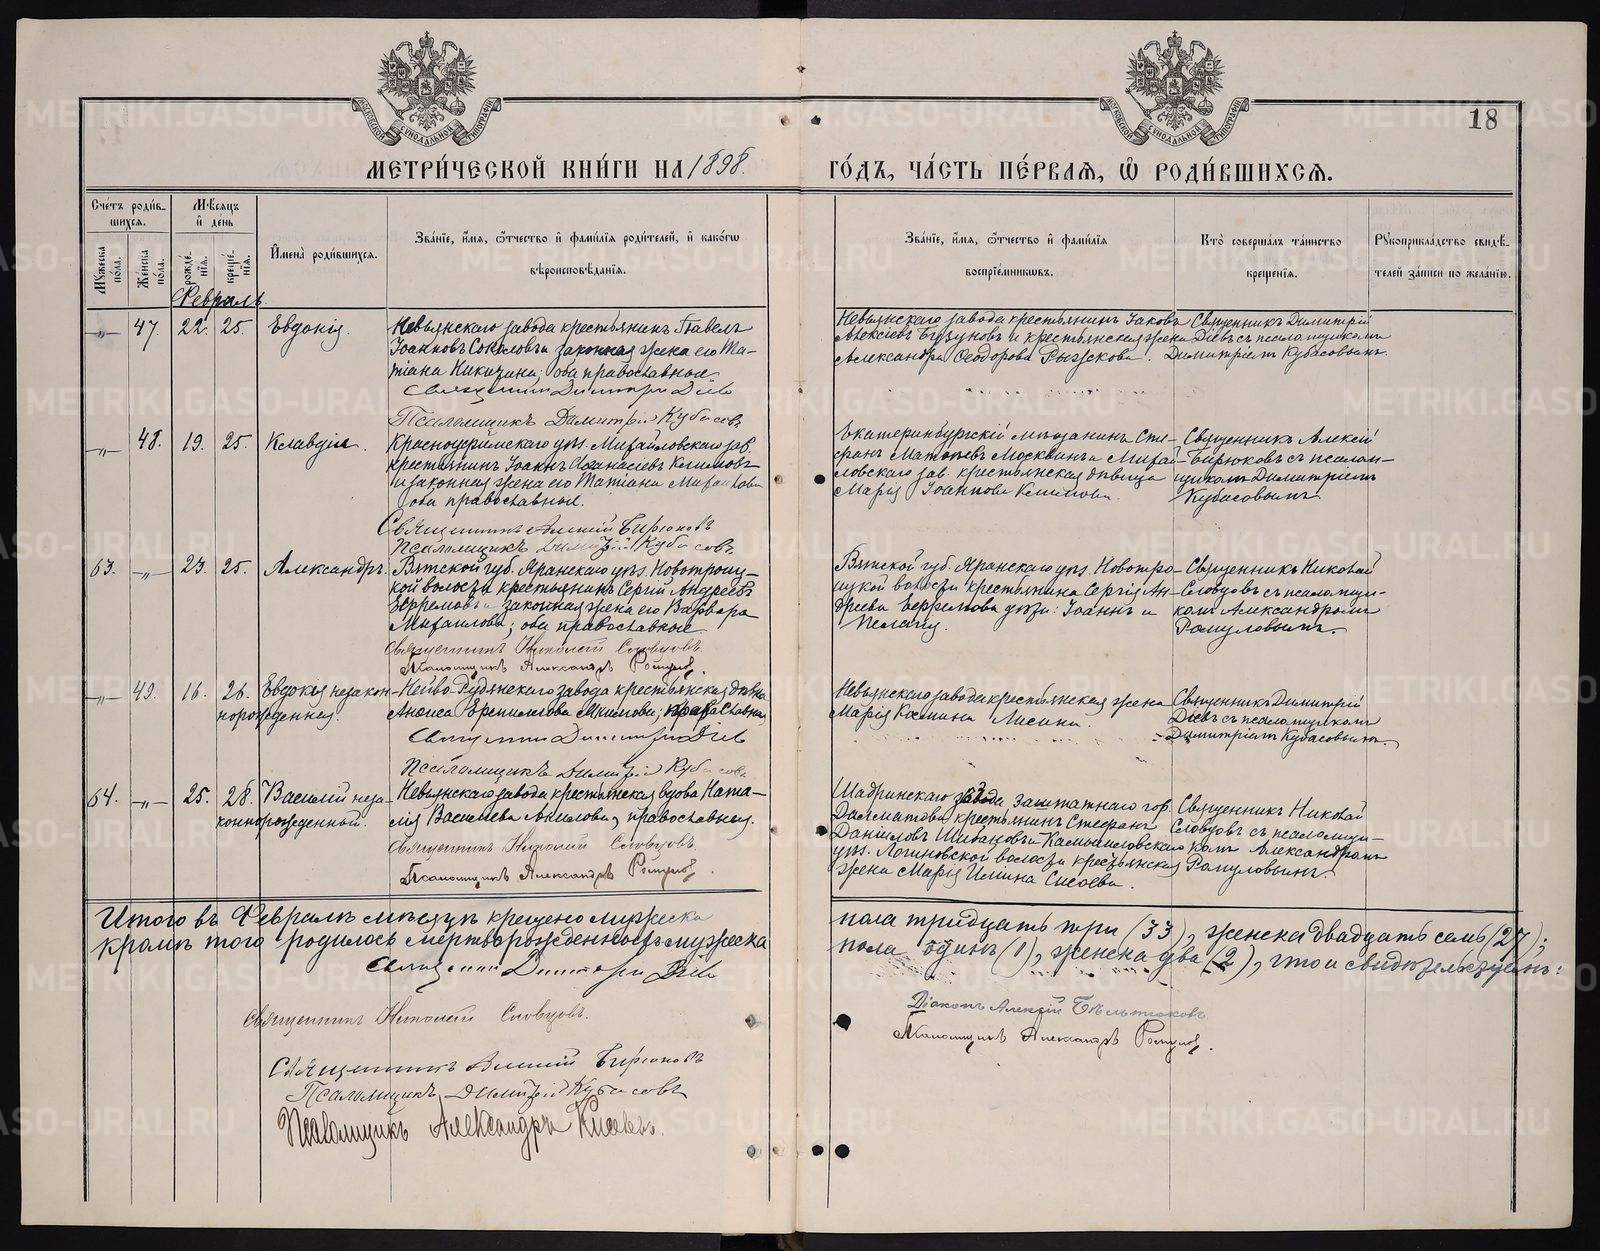 18
МЕТРИ́ЧЕСКОЙ КНИ́ГИ НА 1898.
ГО́ДЪ, ЧА́СТЬ ПЕ́РВАЯ, Ѡ РОДИ́ВШИХСЯ.
Сче́тъ роди́в-
шихся.
Мѣ́сяцъ
и҆ де́нь
Му́жеска по́ла.
Же́нска по́ла.
рожде́нїя.
креще́нїя.
И҆мена̀ роди́вшихся.
Зва́нїе, и҆́мя, ѻ҆́тчество и҆ фами́лїя роди́телей, и҆ како́гѡ
вѣроисповѣ́данїя.
Зва́нїе, и҆́мя, ѻ҆́тчество и҆ фами́лїя
воспрїе́мникѡвъ.
Кто̀ соверша́лъ та́инство
креще́нїя.
Рꙋкоприкла́дство свидѣ́-
телей за́писи по жела́нїю.
Февраль
-„- 47. 22. 25. Евдокія.
Невьянскаго завода крестьянинъ Павелъ
Іоанновъ Соколовъ и законная жена его Та-
тіана Никитина; оба православные
Священникъ Димитрій Діевъ
Псаломщикъ Димитрій Кубасовъ
Невьянскаго завода крестьянинъ Іаковъ
Алексіевъ Бузуновъ и крестьянская жена
Александра Ѳеодорова Рыжкова.
Священникъ Димитрій
Діевъ съ псаломщикомъ
Димитріемъ Кубасовымъ.
-„- 48. 19. 25. Клавдія.
Красноуфимскаго уѣз. Михайловскаго зав.
крестьянинъ Іоаннъ Аѳанасіевъ Климовъ
и законная жена его Татіана Михайлова
оба православные.
Священникъ Алексій Бирюковъ
Псаломщикъ Димитрій Кубасовъ
Екатеринбургскій мѣщанинъ Сте-
фанъ Матѳіевъ Москвинъ и Михай-
ловскаго зав. крестьянская дѣвица
Марія Іоаннова Климова.
Священникъ Алексій
Бирюковъ съ псалом-
щикомъ Димитріемъ
Кубасовымъ
63. -„- 23. 25. Александръ.
Вятской губ. Яранскаго уѣз. Новотроиц-
кой волости крестьянинъ Сергій Андреевъ
Ефремовъ и законная жена его Варвара
Михаилова; оба православные
Священникъ Николай Словцовъ.
Псаломщикъ Александръ Ромуловъ.
Вятской губ. Яранскаго уѣз. Новотро-
ицкой волости крестьянина Сергія Ан-
дреева Ефремова дѣти: Іоаннъ и
Пелагія.
Священникъ Николай
Словцовъ съ псаломщи-
комъ Александромъ
Ромуловымъ.
-„- 49. 16. 26. Евдокія незакон-
норожденная.
Нейво-Рудянскаго завода крестьянская дѣвица
Анѳиса Акимова; православная
Священникъ Димитрій Діевъ
Псаломщикъ Димитрій Кубасовъ
Невьянскаго завода крестьянская жена
Марія Косьмина Лисина.
Священникъ Димитрій
Діевъ съ псаломщикомъ
Димитріемъ Кубасовымъ.
64. -„- 25. 28. Василій неза-
коннорожденный.
Невьянскаго завода крестьянская вдова Ната-
лія Васильева Акилова, православная.
Священникъ Николай Словцовъ.
Псаломщикъ Александръ Ромуловъ.
Шадринскаго заштатнаго гор.
Далматова крестьянинъ Стефанъ
Даніиловъ Шибановъ и Камышловскаго
уѣз. Логиновской волости крестьянская
жена Марія Ильина Сысоева.
Священникъ Николай
Словцовъ съ псаломщи-
комъ Александромъ
Ромуловымъ.
Итого въ Февралѣ мѣсяцѣ крещено мужеска
пола тридцать три (33), женска двадцать семь (27);
кромѣ того родилось мертворожденныхъ мужеска
пола одинъ (1), женска два (2), что и свидѣтельствуемъ:
Священникъ Димитрій Діевъ
Священникъ Николай Словцовъ.
Священникъ Алексій Бирюковъ
Псаломщикъ Димитрій Кубасовъ
Псаломщикъ Александръ
Діаконъ Алексій Бѣльтюковъ
Псаломщикъ Александръ Ромуловъ.
METRIKI.GASO-URAL.RU